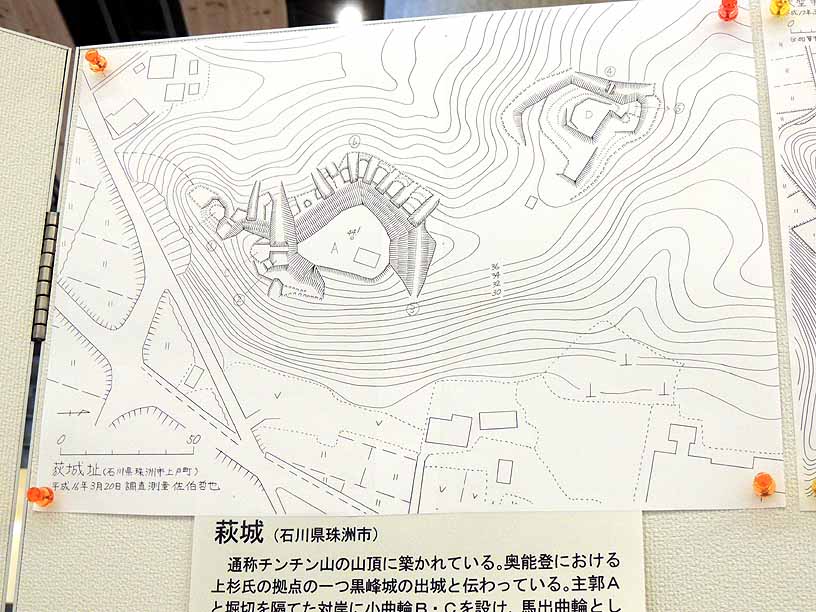 ④
D
⑥
A
44.1
36
34
32
30
⑤
0 50
萩城址(石川県珠洲市上戸町)
平成16年3月20日 調査測量 佐伯哲也
萩城(石川県珠洲市)
通称チンチン山の山頂に築かれている。奥能登における
上杉氏の拠点の一つ黒峰城の出城と伝わっている。主郭A
と堀切を隔てた対岸に小曲輪B・Cを設け、馬出曲輪とし